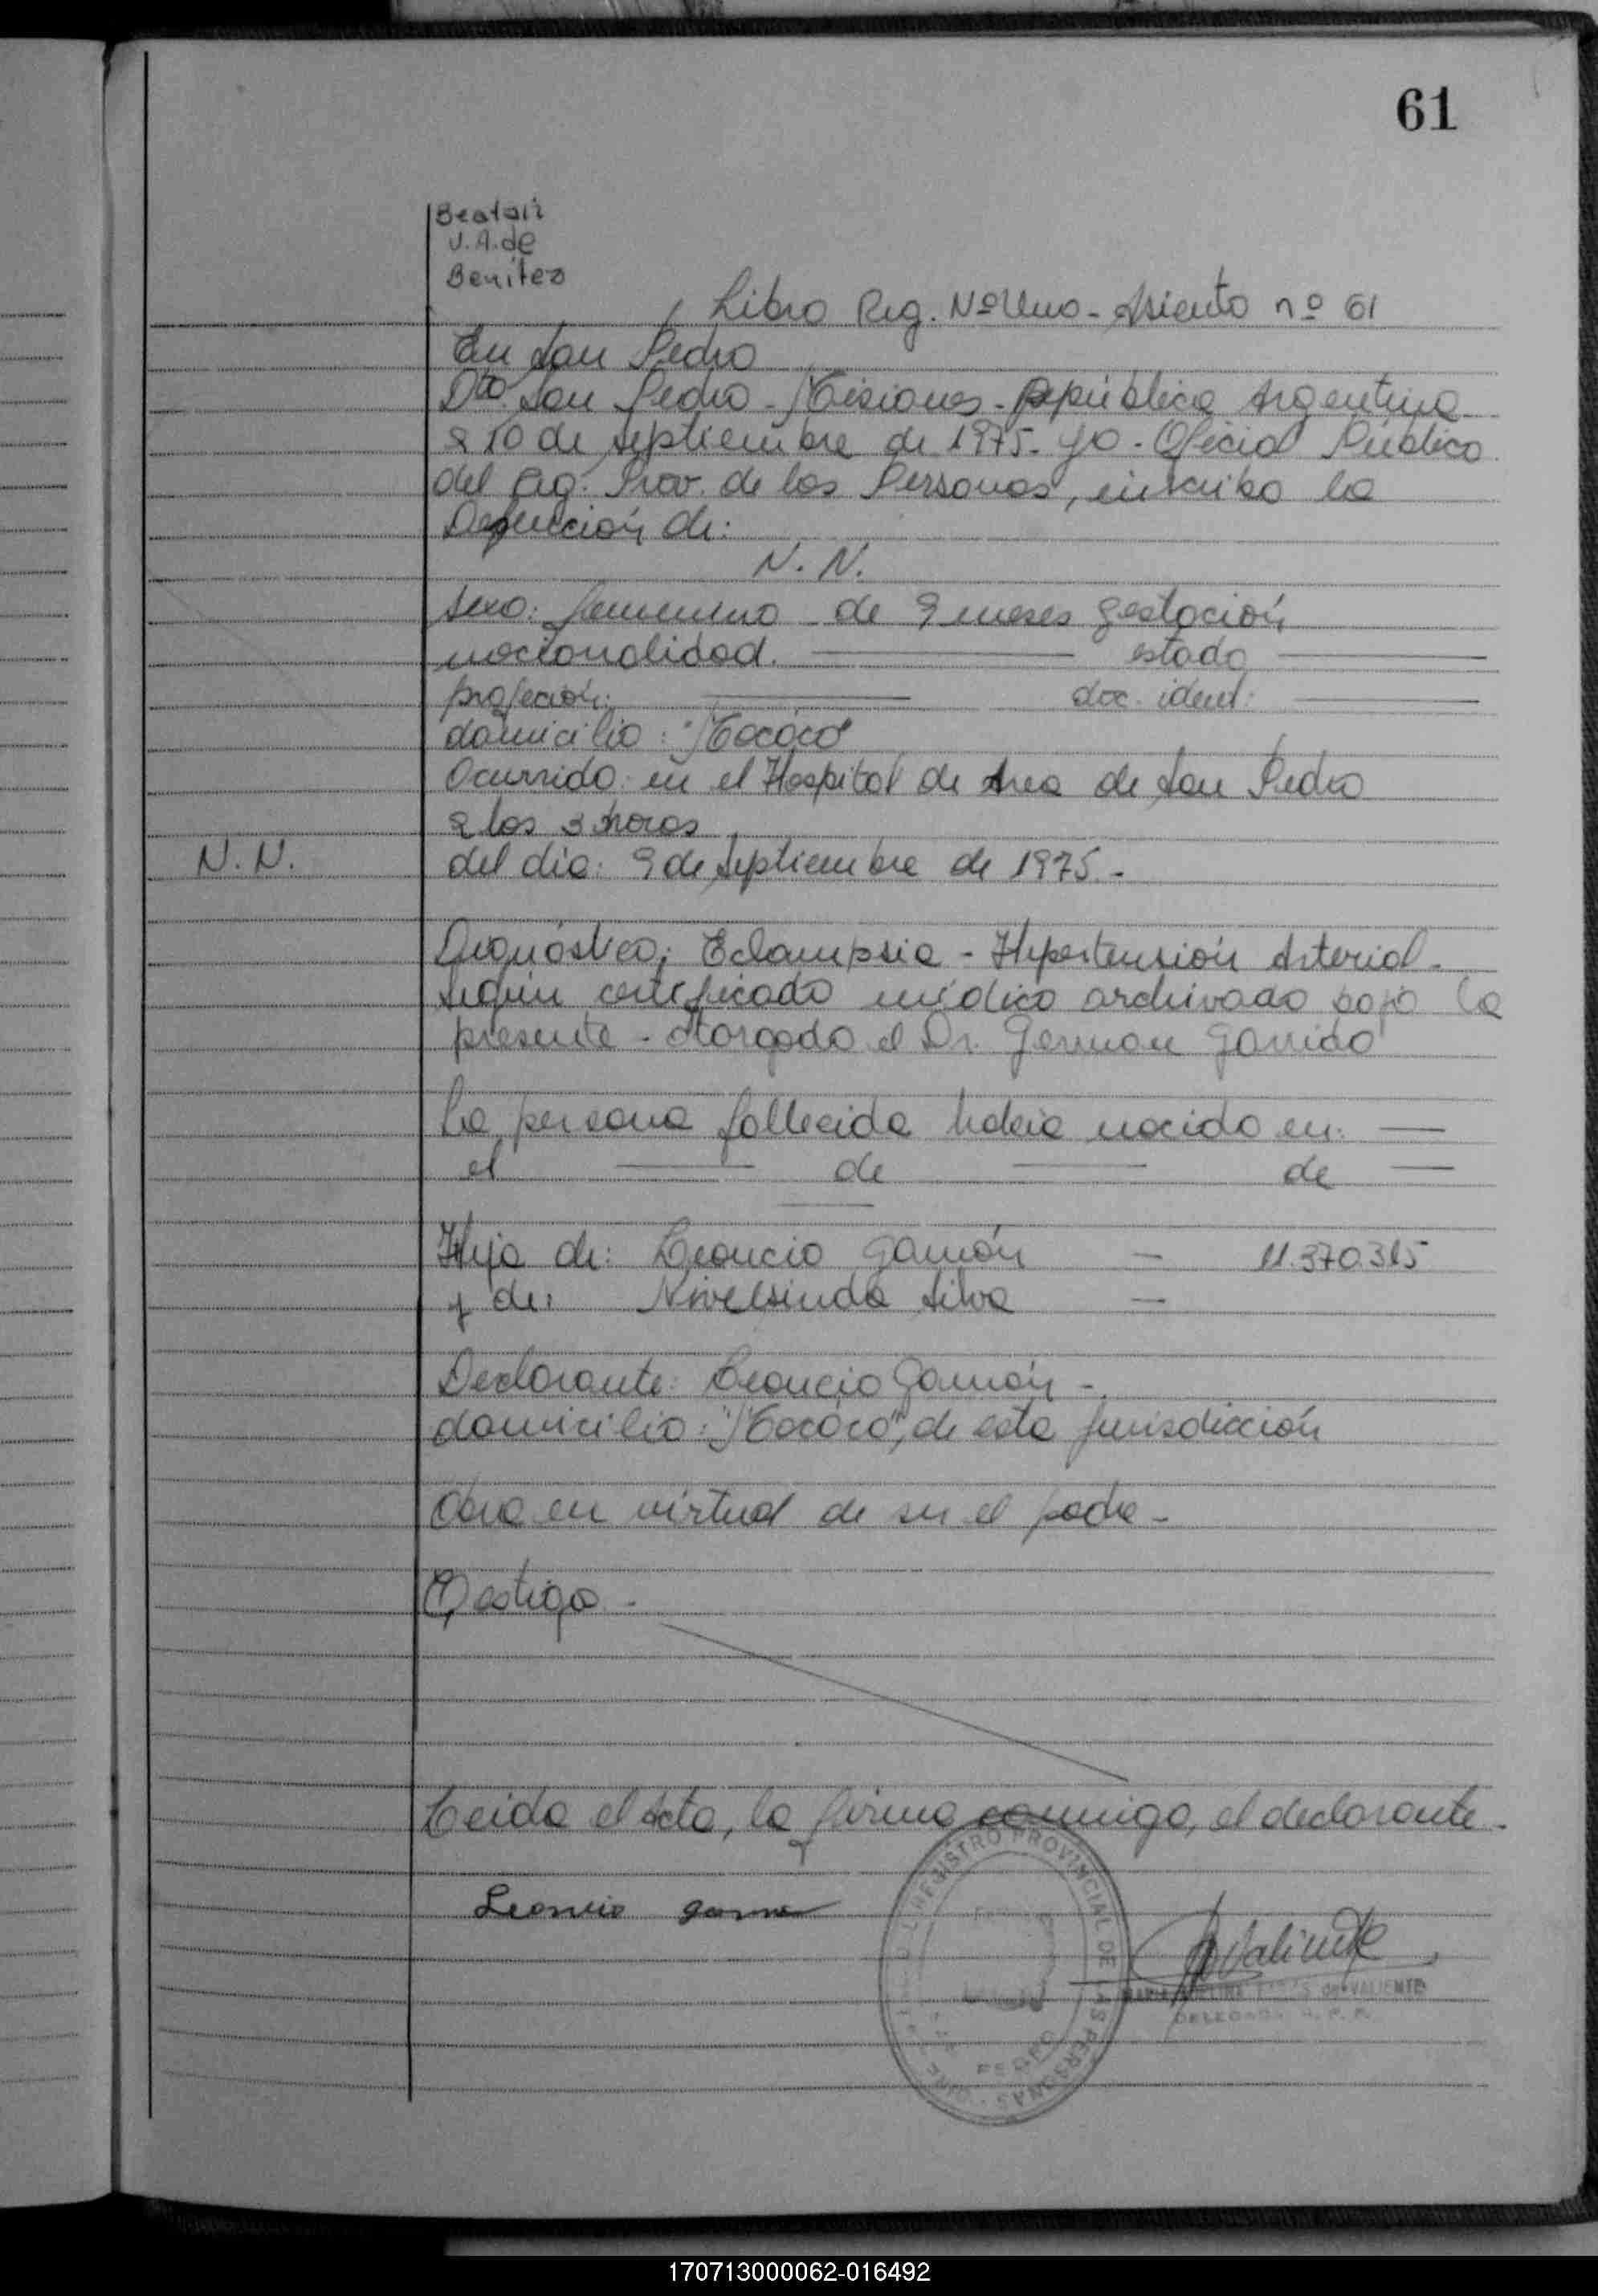 61
Beatriz
V. A. de
Benitez
Libro Reg. Nº Uno - Asiento nº 61
En San Pedro
Dto San Pedro - Misiones - República Argentina
a 10 de septiembre de 1975. yo - Oficial Público
del Reg. Prov. de las Personas, inscribo la
Defunción de:
N. N.
sexo: femenino de 9 meses gestación
nacionalidad. estado
profeción: doc. ident:
domicilio: "Mocóco"
Ocurrido: en el Hospital de Area de San Pedro
a las 3 horas
N. N.
del día: 9 de septiembre de 1975.-
Diagnóstico; Eclampsia - Hipertensión Arterial -
según certificado médico archivado bajo la
presente - otorgado el Dr. German Garrido
La persona fallecida había nacido en:
el de de
Hija de: Leoncio Gamón - 11.370.315
y de: Nivelsinda Silva -
Declarante: Leoncio Gamón -
domicilio: "Mocóco", de esta jurisdicción
Obra en virtud de ser el padre -
Testigo -
Leida el Acta, la firma conmigo, el declarante -
Leoncio
REGISTRO PROVINCIAL DE LAS PERSONAS
PEDRO
Valiente
MARIA de VALIENTE
DELEGADA R. P. P.
170713000062-016492